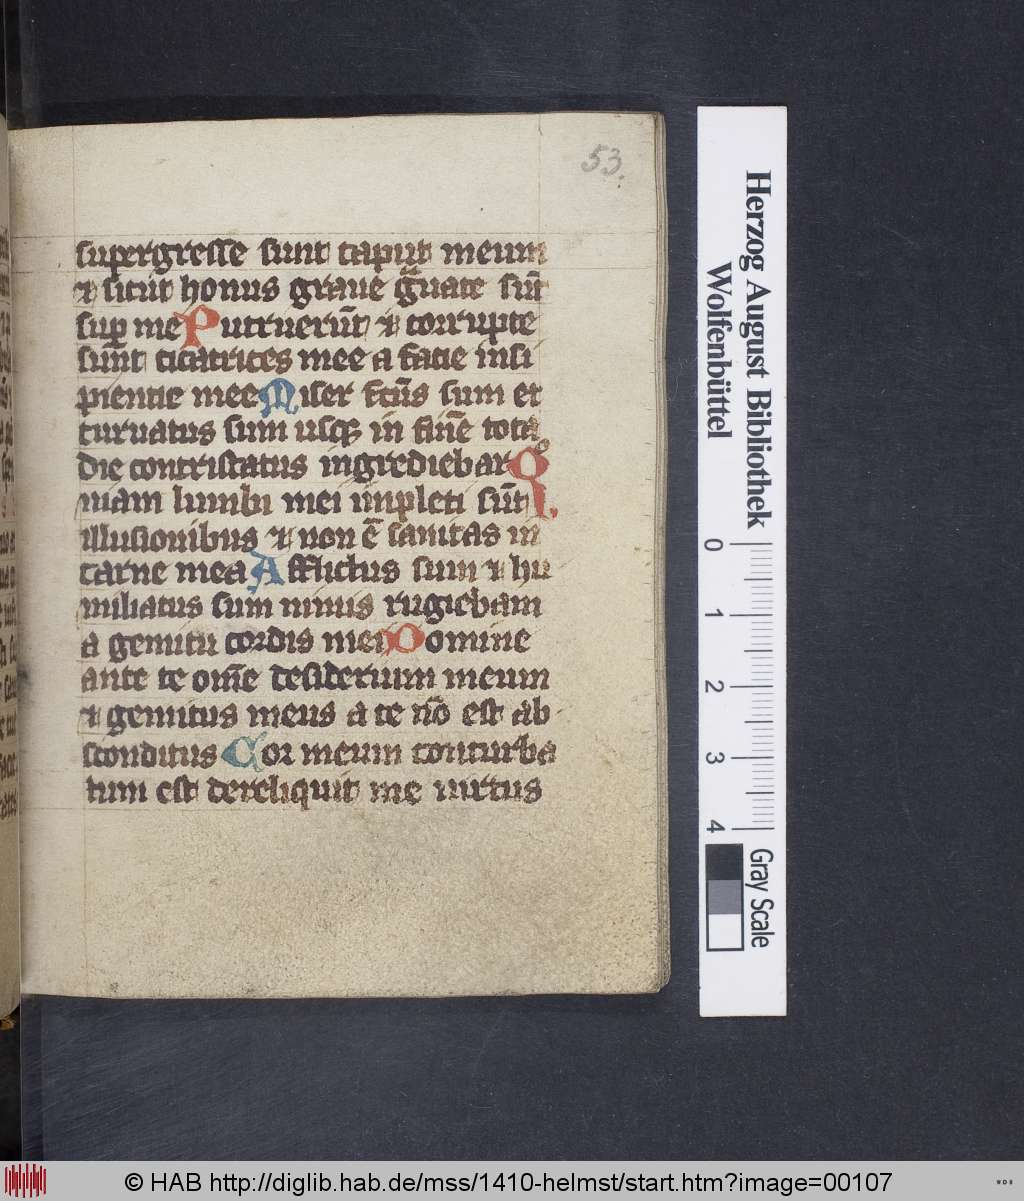 53.
supergresse sunt caput meum
⁊ sicut honus graue g̃uate sũt
suꝑ me Putruerũt ⁊ corrupte
sũnt cicatrices mee a facie insi
pientie mee Miser fctũs sum et
curuatus sum usqꝫ in finẽ tota
die contristatus ingrediebar Qͦ
niam lumbi mei impleti sũt
illusionibus ⁊ non ẽ sanitas in
carne mea Afflictus sum ⁊ hu
miliatus sum nimis rugiebam
a gemitu cordis mei Domine
ante te om̃e desiderium meum
⁊ gemitus meus a te nõ est ab
sconditus Cor meum conturba
tum est dereliquit me uirtus
Herzog August Bibliothek
Wolfenbüttel
0
1
2
3
4
Gray Scale
© HAB http://diglib.hab.de/mss/1410-helmst/start.htm?image=00107